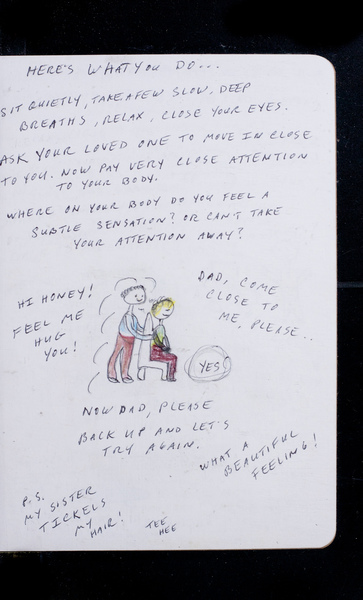 HERE'S WHAT YOU DO...
SIT QUIETLY, TAKE A FEW SLOW, DEEP
BREATHS, RELAX, CLOSE YOUR EYES.
ASK YOUR LOVED ONE TO MOVE IN CLOSE
TO YOU. NOW PAY VERY CLOSE ATTENTION
TO YOUR BODY.
WHERE ON YOUR BODY DO YOU FEEL A
SUBTLE SENSATION? OR CAN'T TAKE
YOUR ATTENTION AWAY?
HI HONEY!
FEEL ME
HUG
YOU!
DAD, COME
CLOSE TO
ME, PLEASE..
YES!
NOW DAD, PLEASE
BACK UP AND LET'S
TRY AGAIN.
WHAT A
BEAUTIFUL
FEELING!
P.S.
MY SISTER
TICKELS
MY
HAIR!
TEE
HEE